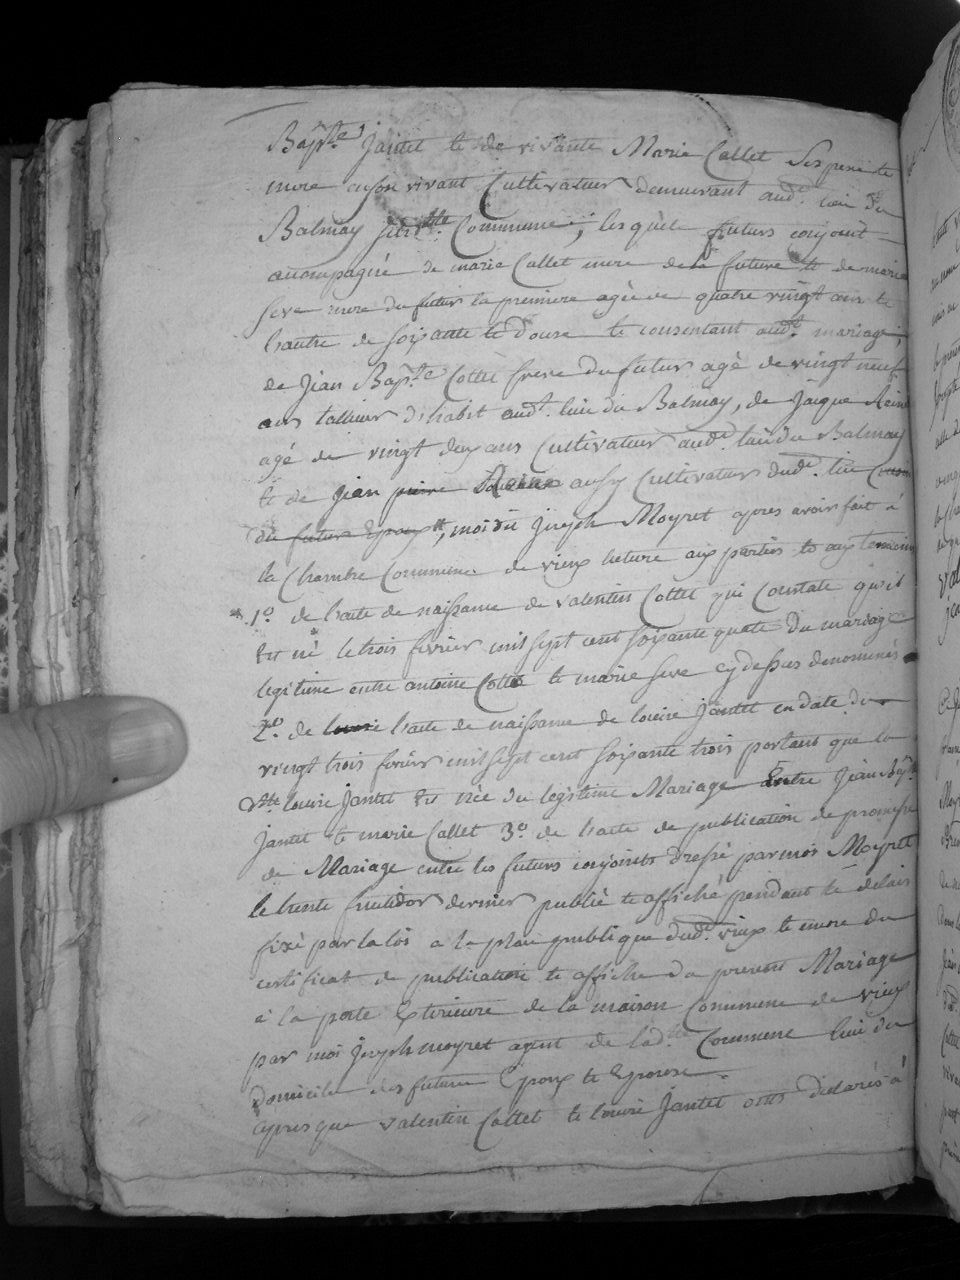 Bapt.e Jantet & de vivante Marie Callet ses pere &
mere en son vivant Cultivateur demeurant aud. lieu du
Balmay susd.tte Commune; lesquels futurs conjoint
accompagné de marie Callet mere de la future & de marie
seve mere du futur la premiere agée de quatre vingt ans &
l'autre de soixante & douse & consentant aud.t mariage;
de Jean Bapt.e Cottet frere du futur agé de vingt neuf
ans tallieur d'habit aud.t lieu du Balmay, de Jacque Reine
agé de vingt deux ans Cultivateur aud.t lieu du Balmay
& de Jean pierre Reine aussy Cultivateur dud.t lieu
du futur Epoux, moi dit Joseph Moyret apres avoir fait à
la Chambre Commune de vieux lecture aux parties & aux temoins
1.o de l'acte de naissance de valentin Cottet qui Constate qu'il
est né le trois fevrier mil sept cent soixante quatre du mariage
legitime entre antoine Cottet & marie seve cy dessus denommés
2.o de l'acte de naissance de louise Jantet en date du
vingt trois fevrier mil sept cent soixante trois portant que la
d.tte louise Jantet est née du legitime Mariage Entre Jean Bap.te
Jantet & marie Callet 3.o de l'acte de publication de promesse
de Mariage entre les futurs conjoints dressé par moi Moyret
le trente fructidor dernier publié & affiché pendant le delais
fixé par la loi a la place publique dud.t vieux & encore du
certificat de publication & affiche du present Mariage
à la porte Exterieure de la maison Commune de vieux
par moi Joseph moyret agent de lad.tte Commune lieu du
domicile des futurs Epoux & Epouse.
apres que valentin Cottet & louise Jantet ont declarés à